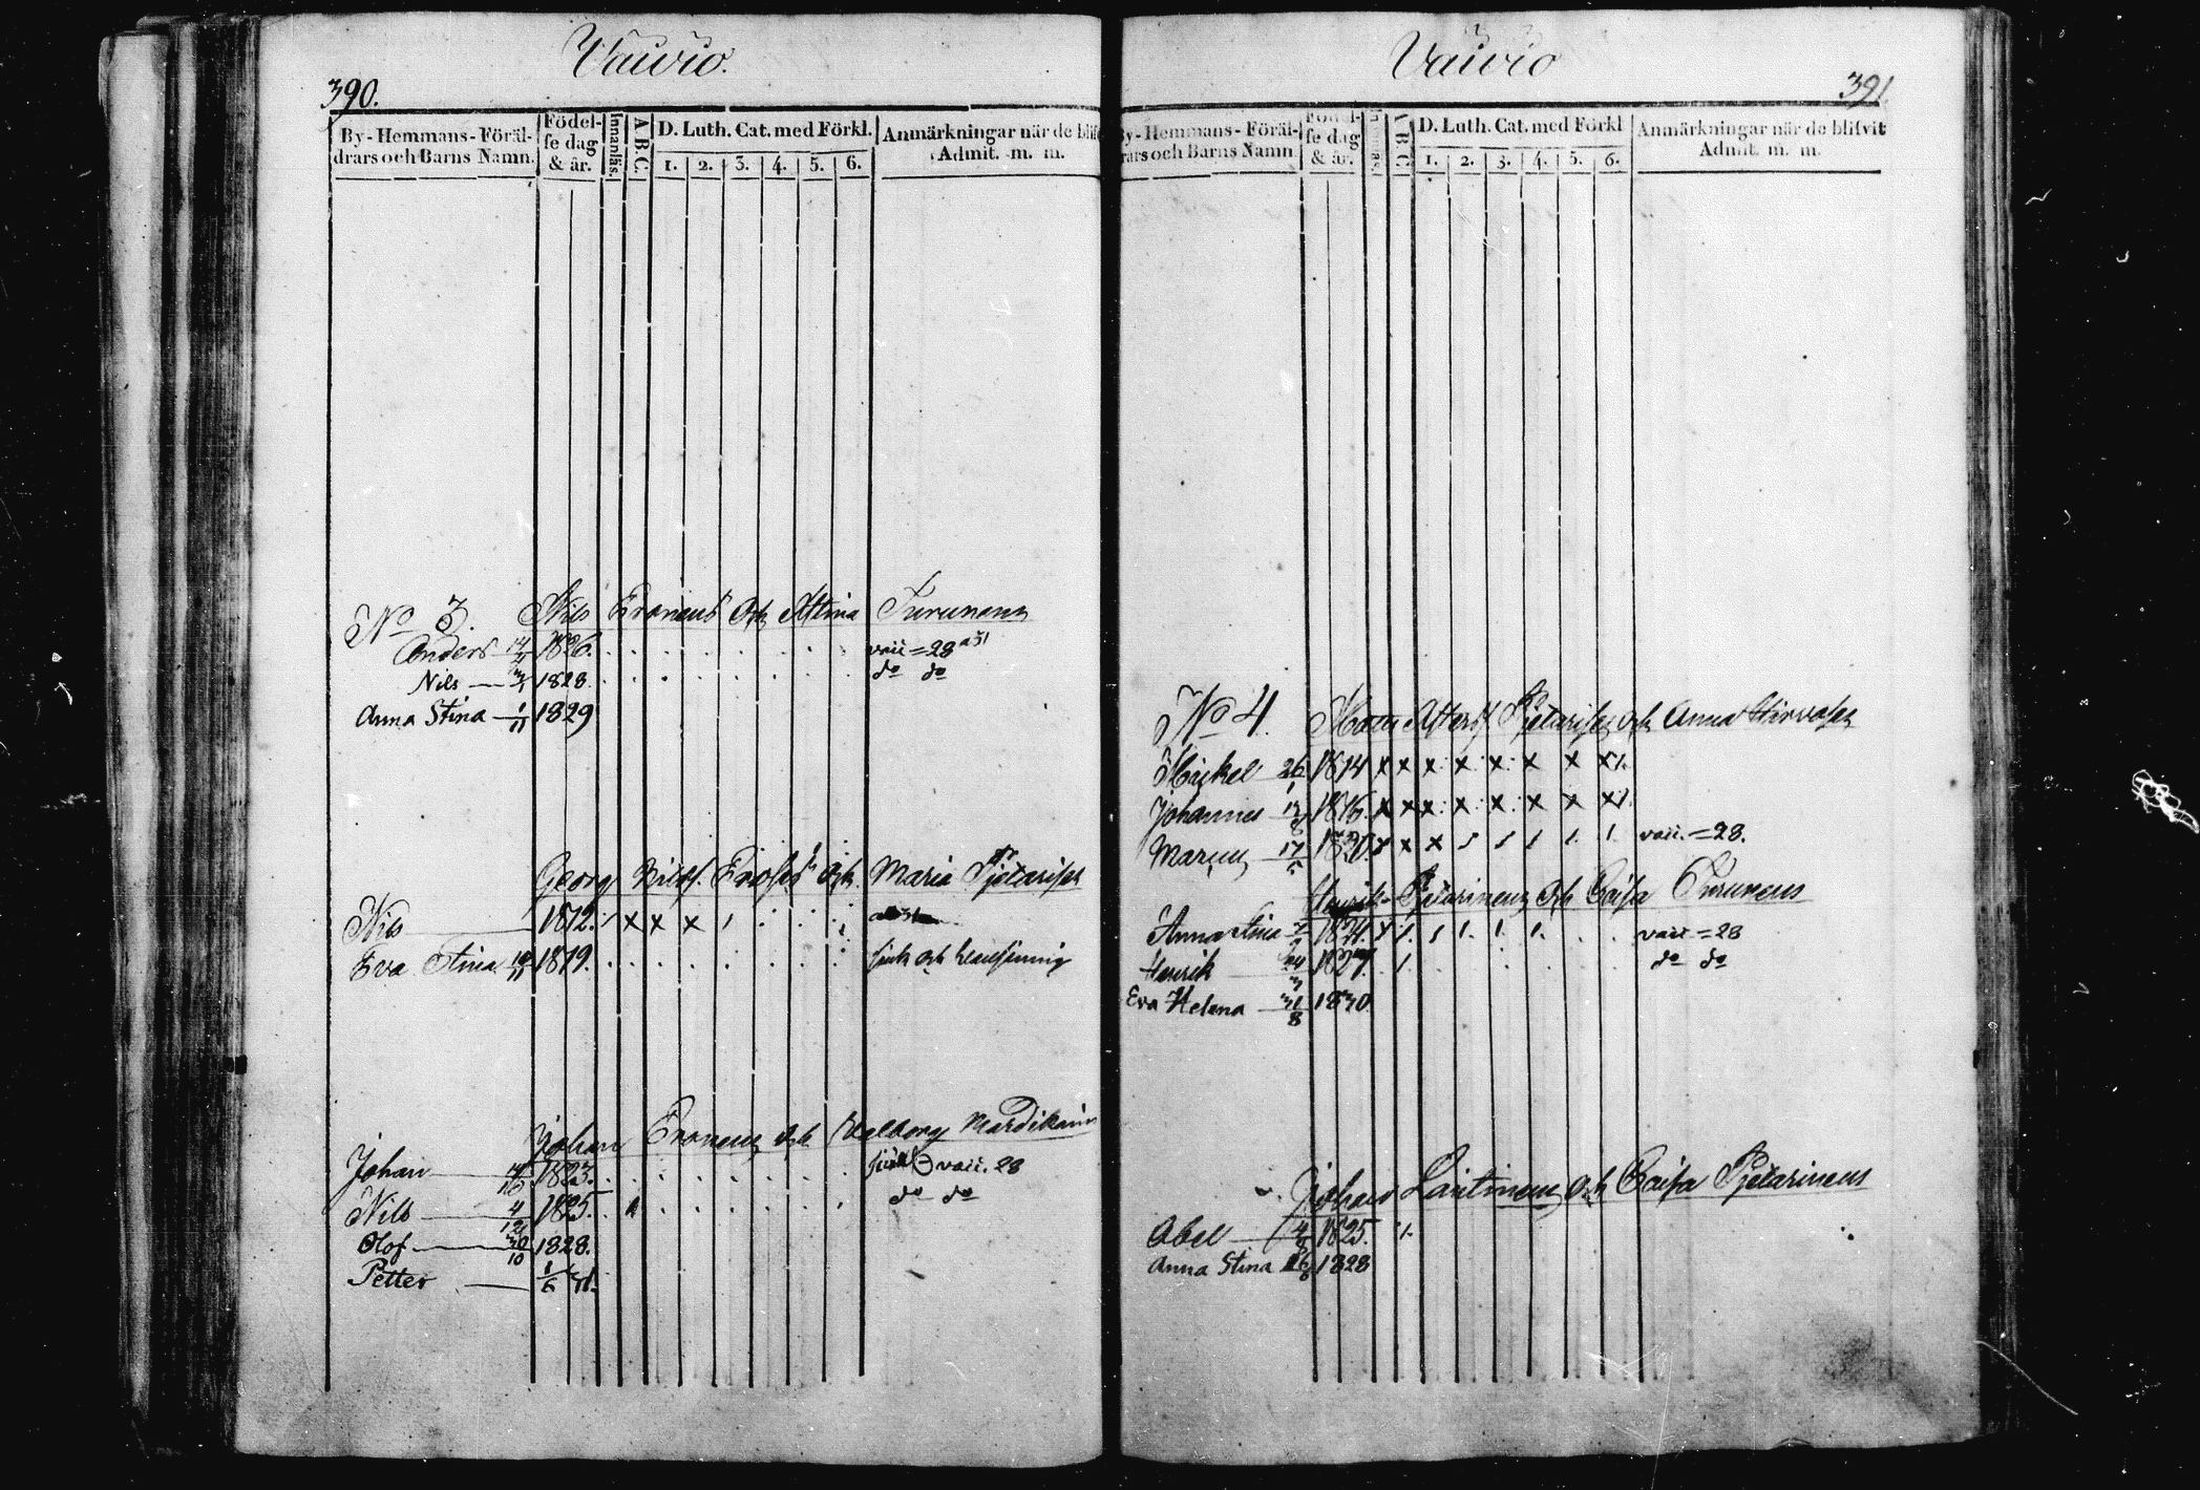 Vaivio.
390.
By-Hemmans-Föräl-
drars och Barns Namn.
Födel-
se dag
& år.
Innanläs.
A B C.
D. Luth. Cat. med Förkl.
1. 2. 3. 4. 5. 6.
Anmärkningar när de blif
Admit. m. m.
No 3. Nils Eronens och Stina Turunens
Anders 1826. vaii=28
Nils 3/1 1828. do do
Anna Stina 1/11 1829
Georg Nilss. och Maria Pjetarisen
Nils 1812. x x x
Eva Stina 1819. siuk och
Johan Eronens och Valborg
Johan 14/10 1823. vaii. 28
Nils 4/12 1825. do do
Olof 30/10 1828.
Petter 1/6 31.
Vaivio
391
By-Hemmans-Föräl-
drars och Barns Namn
Födel-
se dag
& år.
Innanläs.
A B C
D. Luth. Cat. med Förkl
1. 2. 3. 4. 5. 6.
Anmärkningar när de blifvit
Admit. m. m.
No 4. Matts Pjetarisen och Anna Hirvosen
Mickel 26/1 1814 x x x x x x x x
Johannes 1816. x x x x x x x x
Marcus 17/5 1820. x x x vaii.=28.
Henrik Pjetarinens och Caisa Turunens
Anna Stina 1824. vaii=28
Henrik 24/3 1827. do do
Eva Helena 31/8 1830
Johan Lautinens och Caisa Pjetarinens
Abel 1825.
Anna Stina 1828